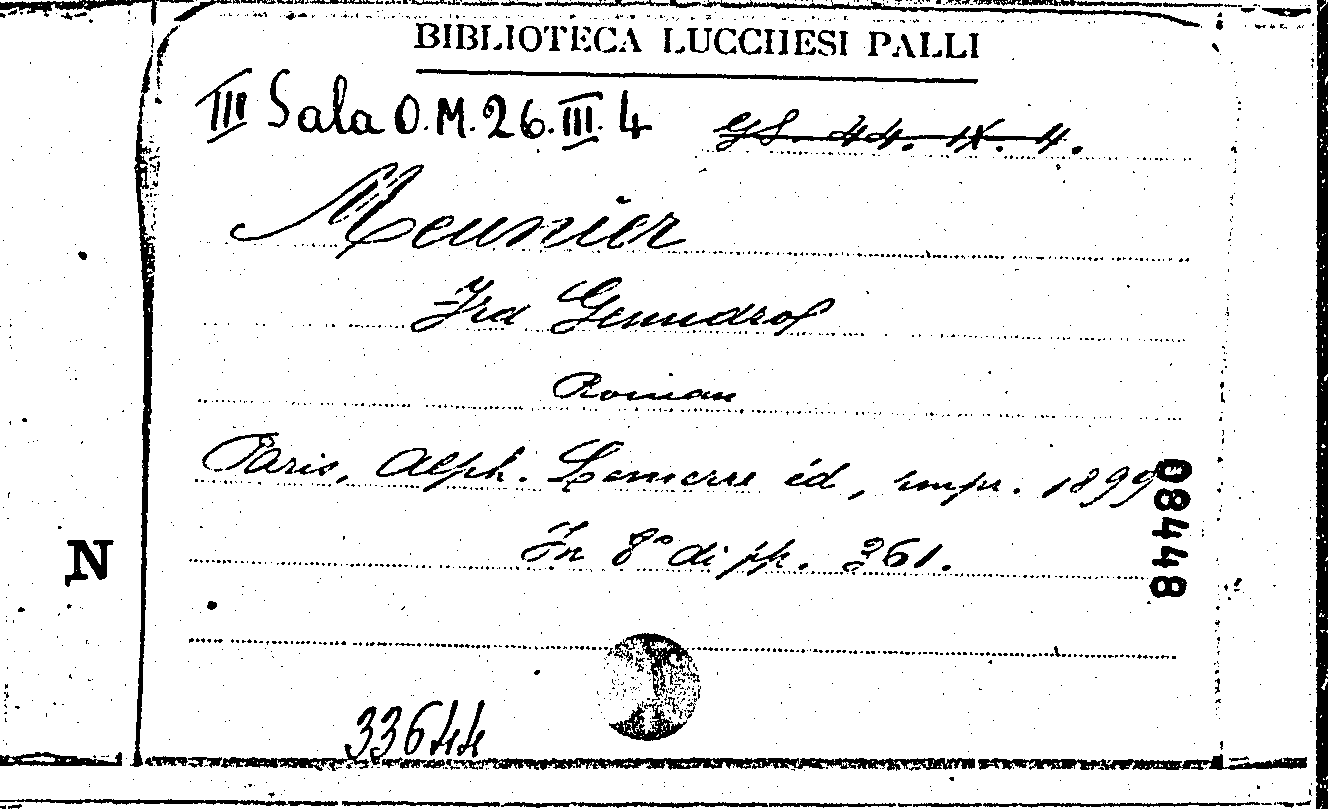 BIBLIOTECA LUCCHESI PALLI
III Sala O.M. 26. III. 4 44. IX. 4.
Meunier
Roman
Paris, Alph. Lemerre éd, impr. 1899
In 8° di pp. 361.
08448
N
33644